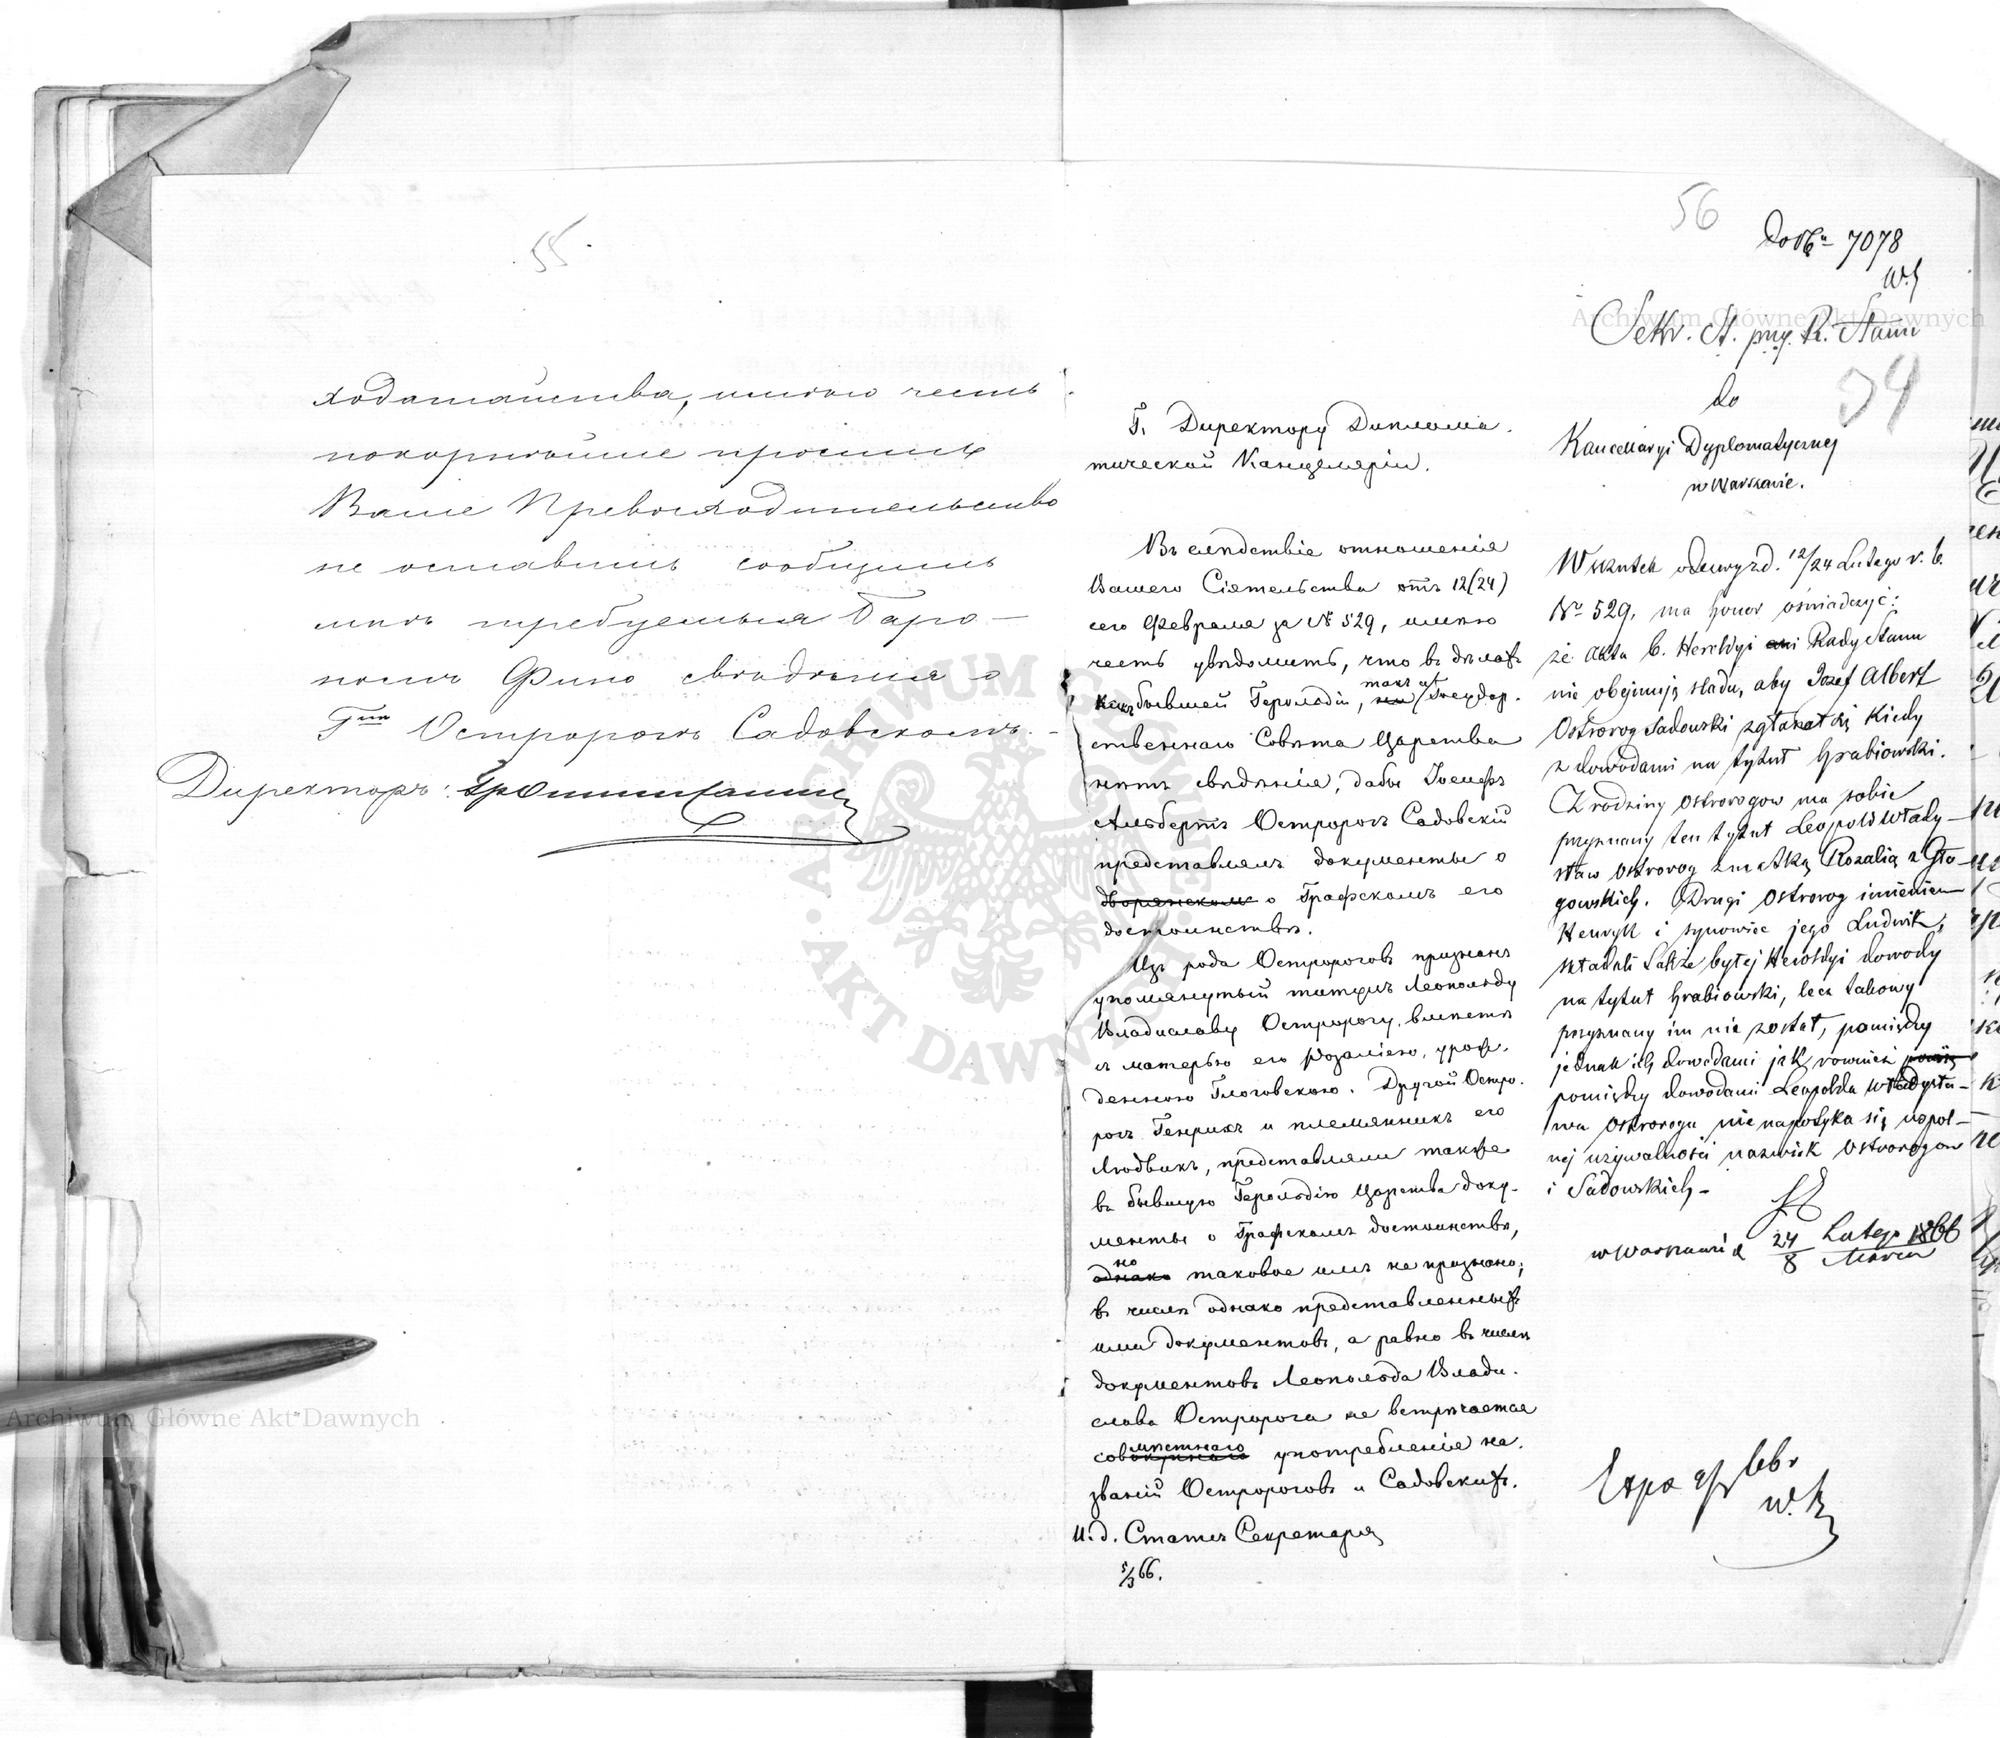 55
ходатайства, имѣю честь
покорнѣйше просить
Ваше Превосходительство
не оставить сообщить
мнѣ требуемыя Баро-
номъ Фино свѣдѣнія о
Гнѣ Остророгѣ Садовскомъ.
Директоръ:
56
7078
Sekr. St. przy R. Stanu
94
do
Kancellaryi Dyplomatycznej
w Warszawie.
Г. Директору Диплома-
тической Канцеляріи.
Въ слѣдствіе отношенія
Вашего Сіятельства отъ 12/(24)
сего Февраля за № 529, имѣю
честь увѣдомить, что въ дѣлахъ
какъ бывшей Герольдіи, такъ и Государ-
ственнаго Совѣта Царства
нѣтъ свѣдѣнія, дабы Іосифъ
Альбертъ Остророгъ Садовскій
представлялъ документы о
дворянскомъ о Графскомъ его
достоинствѣ.
Изъ рода Остророговъ признанъ
упомянутый титулъ Леопольду
Владиславу Остророгу, вмѣстѣ
съ матерью его Розаліею, урож-
денною Глоговскою. Другой Остро-
рогъ Генрихъ и племянникъ его
Людвикъ, представляли также
въ бывшую Герольдію Царства доку-
менты о Графскомъ достоинствѣ,
но
однако таковое имъ не признано;
въ числѣ однако представленныхъ
ими документовъ, а равно въ числѣ
документовъ Леопольда Влади-
слава Остророга не встрѣчается
совмѣстнаго употребленія на-
званій Остророговъ и Садовскихъ.
И. д. Статсъ Секретаря
5/3 66.
Wskutek odezwy z d. 12/24 Lutego r. b.
No 529, ma honor oświadczyć:
że akta b. Heroldyi ani Rady Stanu
nie obejmują śladu, aby Józef Albert
Ostroróg Sadowski zgłaszał się kiedy
z dowodami na tytuł hrabiowski.
Z rodziny Ostrorogow ma sobie
przyznany ten tytuł Leopold Włady-
sław Ostroróg z matką Rozalią z Gło-
gowskich. Drugi Ostroróg imieniem
Henryk i synowiec jego Ludwik,
składali także byłej Heroldyi dowody
na tytuł hrabiowski, lecz takowy
przyznany im nie został, pomiędzy
jednak ich dowodami jak również
pomiędzy dowodami Leopolda Władysła-
wa Ostroroga nie napotyka się wspól-
nej używalności nazwisk Ostrorogow
i Sadowskich-
w Warszawie d 24/8 Lutego/Marca 1866
Archiwum Główne Akt Dawnych
Archiwum Główne Akt Dawnych
ARCHIWUM GŁÓWNE · AKT DAWNYCH ·